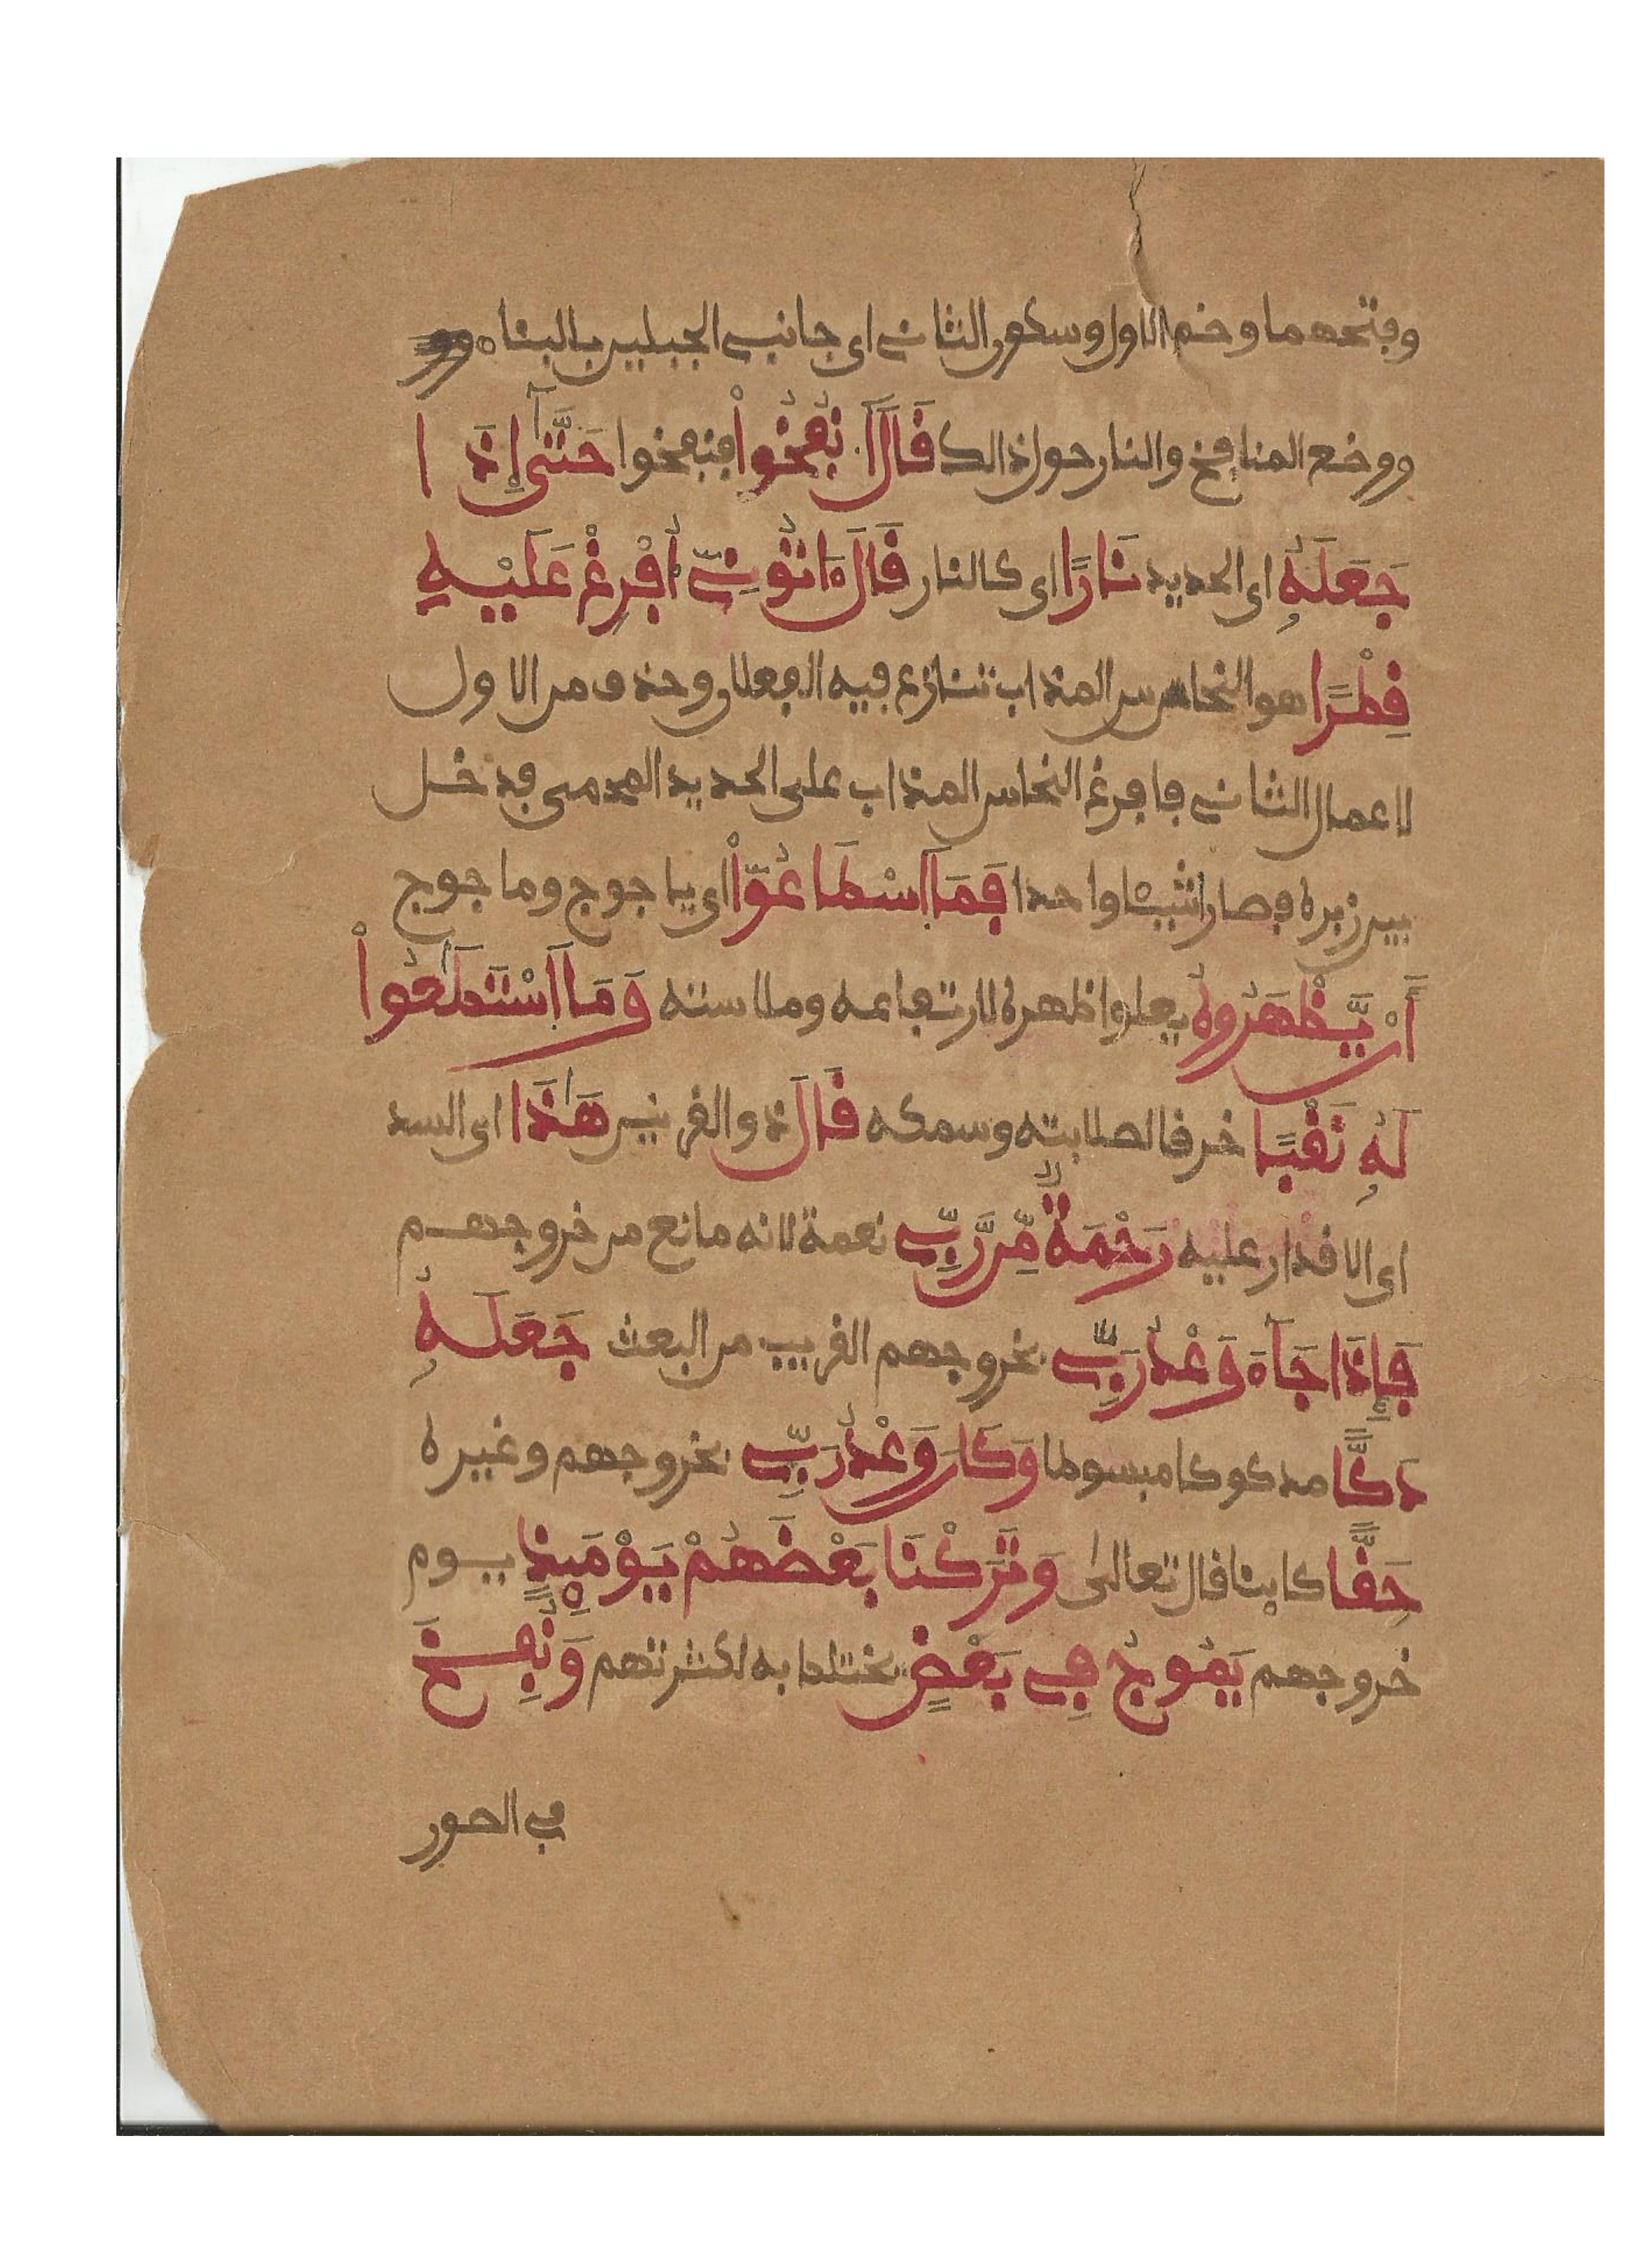 وفتحهما وضم الاول وسكون الثاني اي جانبي الجبلين بالبناء
ووضع المنافخ والنار حول ذالك قَالَ اَنفُخُواْ فنفخوا حَتَّىٰٓ إِذَا
جَعَلَهُۥ اي الحديد نَارًا اي كالنار قَالَ ءَاتُونِيٓ أُفْرِغْ عَلَيْهِ
قِطْرًا هو النحاس المذاب تنازع فيه الفعلان وحذف من الاول
لاعمال الثاني فافرغ النحاس المذاب على الحديد المحمى فدخل
بين زبره فصار شيئا واحدا فَمَا اَسْطَاعُوٓاْ اي ياجوج وماجوج
أَنْ يَّظْهَرُوهُ يعلوا ظهره لارتفاعه وملاسته وَمَا اَسْتَطَٰعُواْ
لَهُۥ نَقْبًا خرقا لصلابته وسمكه قَالَ ذو القرنين هَٰذَا اي السد
اي الاقدار عليه رَحْمَةٌ مِّن رَّبِّي نعمة لانه مانع من خروجهم
فَإِذَا جَآءَ وَعْدُ رَبِّي بخروجهم القريب من البعث جَعَلَهُۥ
دَكًّا مدكوكا مبسوطا وَكَانَ وَعْدُ رَبِّي بخروجهم وغيره
حَقًّا كاينا قال تعالى وَتَرَكْنَا بَعْضَهُمْ يَوْمَئِذٍ يوم
خروجهم يَمُوجُ فِي بَعْضٍ يختلط به لكثرتهم وَنُفِخَ
في الصور